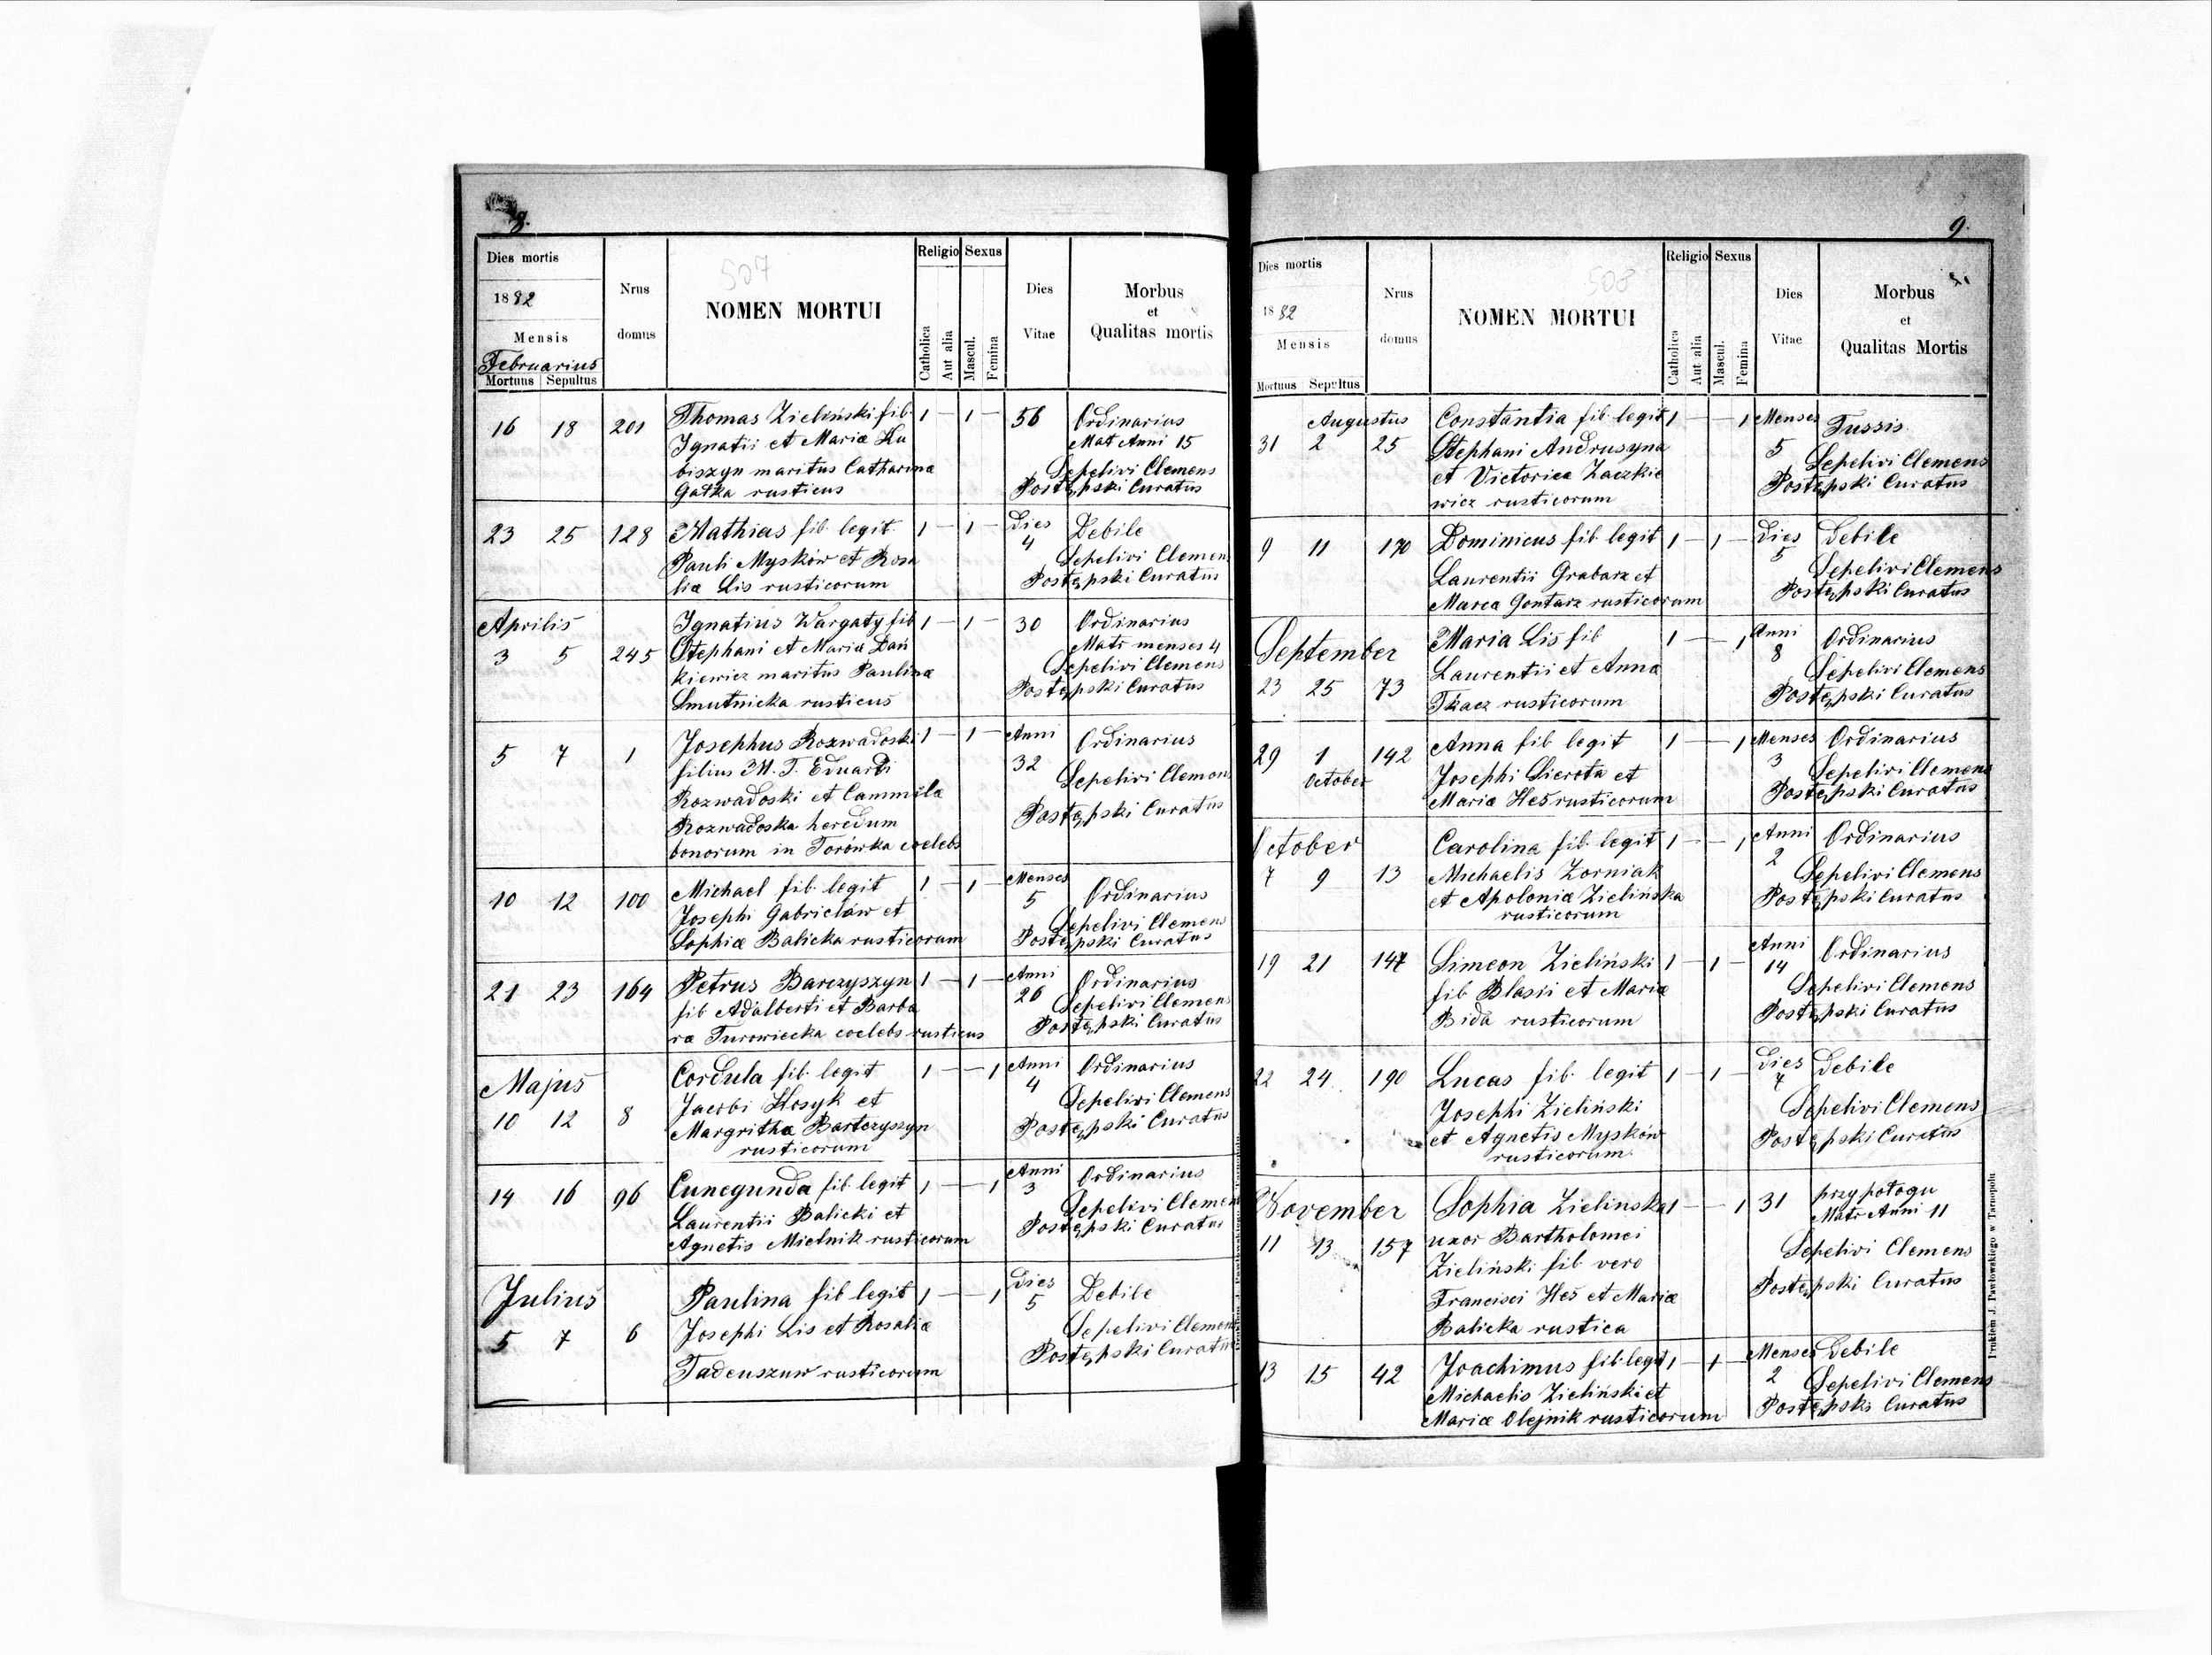 8.
507
Dies mortis
1882
Mensis
Februarius
Mortuus Sepultus
Nrus domus
NOMEN MORTUI
Religio Sexus
Catholica Aut alia Mascul. Femina
Dies Vitae
Morbus et Qualitas mortis
16 18 201 Thomas Zieliński fil. 1 — 1 — 56 Ordinarius
Ignatii et Maria Ku Mat Anni 15
biszyn maritus Catharina Sepelivi Clemens
Gałka rusticus Postępski Curatus
23 25 128 Mathias fil. legit 1 — 1 — Dies 4 Debile
Pauli Mysków et Rosa Sepelivi Clemens
lia Lis rusticorum Postępski Curatus
Aprilis
3 5 245 Ignatius Wargaty fil 1 — 1 — 30 Ordinarius
Stephani et Maria Dań Matr menses 4
kiewicz maritus Paulina Sepelivi Clemens
Smutnicka rusticus Postępski Curatus
5 7 1 Josephus Rozwadoski 1 — 1 — Anni 32 Ordinarius
filius M. T. Eduardi Sepelivi Clemens
Rozwadoski et Cammila Postępski Curatus
Rozwadoska heredum
bonorum in Torówka coelebs
10 12 100 Michael fil. legit 1 — 1 — Menses 5 Ordinarius
Josephi Gabrielów et Sepelivi Clemens
Sophia Balicka rusticorum Postępski Curatus
21 23 164 Petrus Barczyszyn 1 — 1 — Anni 26 Ordinarius
fil Adalberti et Barba Sepelivi Clemens
ra Turowiecka coelebs rusticus Postępski Curatus
Majus
10 12 8 Cordula fil. legit 1 — — 1 Anni 4 Ordinarius
Jacobi Kosyk et Sepelivi Clemens
Margritha Bartczyszyn Postępski Curatus
rusticorum
14 16 96 Cunegunda fil. legit 1 — — 1 Anni 3 Ordinarius
Laurentii Balicki et Sepelivi Clemens
Agnetis Mielnik rusticorum Postępski Curatus
Julius
5 7 6 Paulina fil. legit 1 — — 1 Dies 5 Debile
Josephi Lis et Rosalia Sepelivi Clemens
Tadeuszuw rusticorum Postępski Curatus
9.
508
Dies mortis
1882
Mensis
Mortuus Sepultus
Nrus domus
NOMEN MORTUI
Religio Sexus
Catholica Aut alia Mascul. Femina
Dies Vitae
Morbus et Qualitas Mortis
Augustus
31 2 25 Constantia fil. legit 1 — — 1 Menses 5 Tussis
Stephani Andrusyna Sepelivi Clemens
et Victorica Zaczkie Postępski Curatus
wicz rusticorum
9 11 170 Dominicus fil. legit 1 — 1 — Dies 5 Debile
Laurentii Grabarz et Sepelivi Clemens
Marca Gontarz rusticorum Postępski Curatus
September
23 25 73 Maria Lis fil 1 — — 1 Anni 8 Ordinarius
Laurentii et Anna Sepelivi Clemens
Tkacz rusticorum Postępski Curatus
29 1 October 142 Anna fil. legit 1 — — 1 Menses 3 Ordinarius
Josephi Sierota et Sepelivi Clemens
Maria Heś rusticorum Postępski Curatus
October
7 9 13 Carolina fil. legit 1 — — 1 Anni 2 Ordinarius
Michaelis Zorniak Sepelivi Clemens
et Apolonia Zielińska Postępski Curatus
rusticorum
19 21 147 Simeon Zieliński 1 — 1 — Anni 14 Ordinarius
fil Blasii et Maria Sepelivi Clemens
Bida rusticorum Postępski Curatus
22 24 190 Lucas fil. legit 1 — 1 — Dies 7 Debile
Josephi Zieliński Sepelivi Clemens
et Agnetis Mysków Postępski Curatus
rusticorum
November
11 13 157 Sophia Zielinska 1 — — 1 31 przy połogu
uxor Bartholomei Matr Anni 11
Zieliński fil vero Sepelivi Clemens
Francisci Heś et Maria Postępski Curatus
Balicka rustica
13 15 42 Joachimus fil. legit 1 — 1 — Menses 2 Debile
Michaelis Zieliński et Sepelivi Clemens
Maria Olejnik rusticorum Postępski Curatus
Drukiem J. Pawłowskiego w Tarnopolu